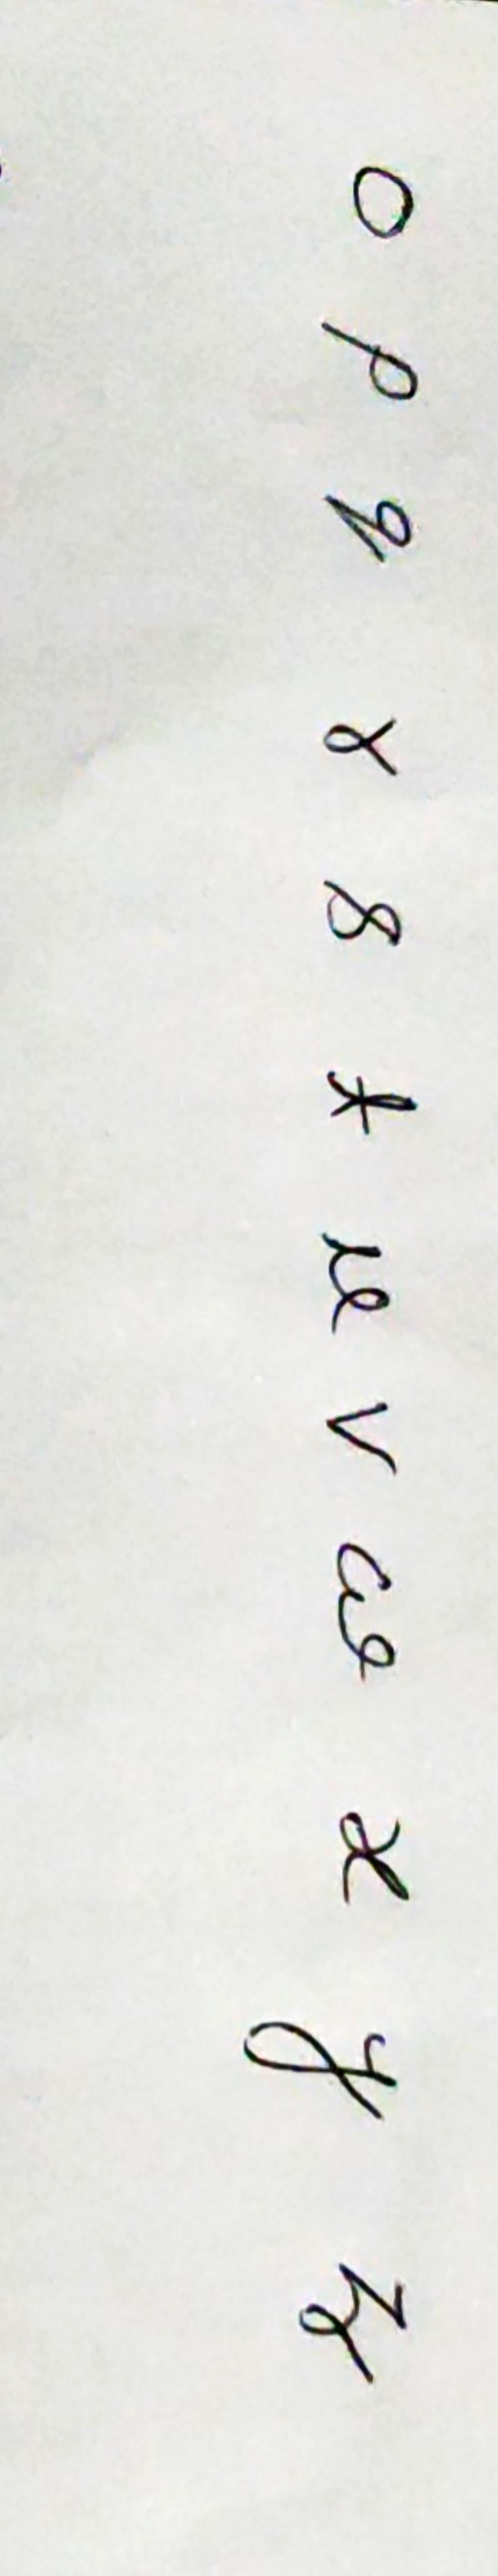 o p q r s t u v w x y z